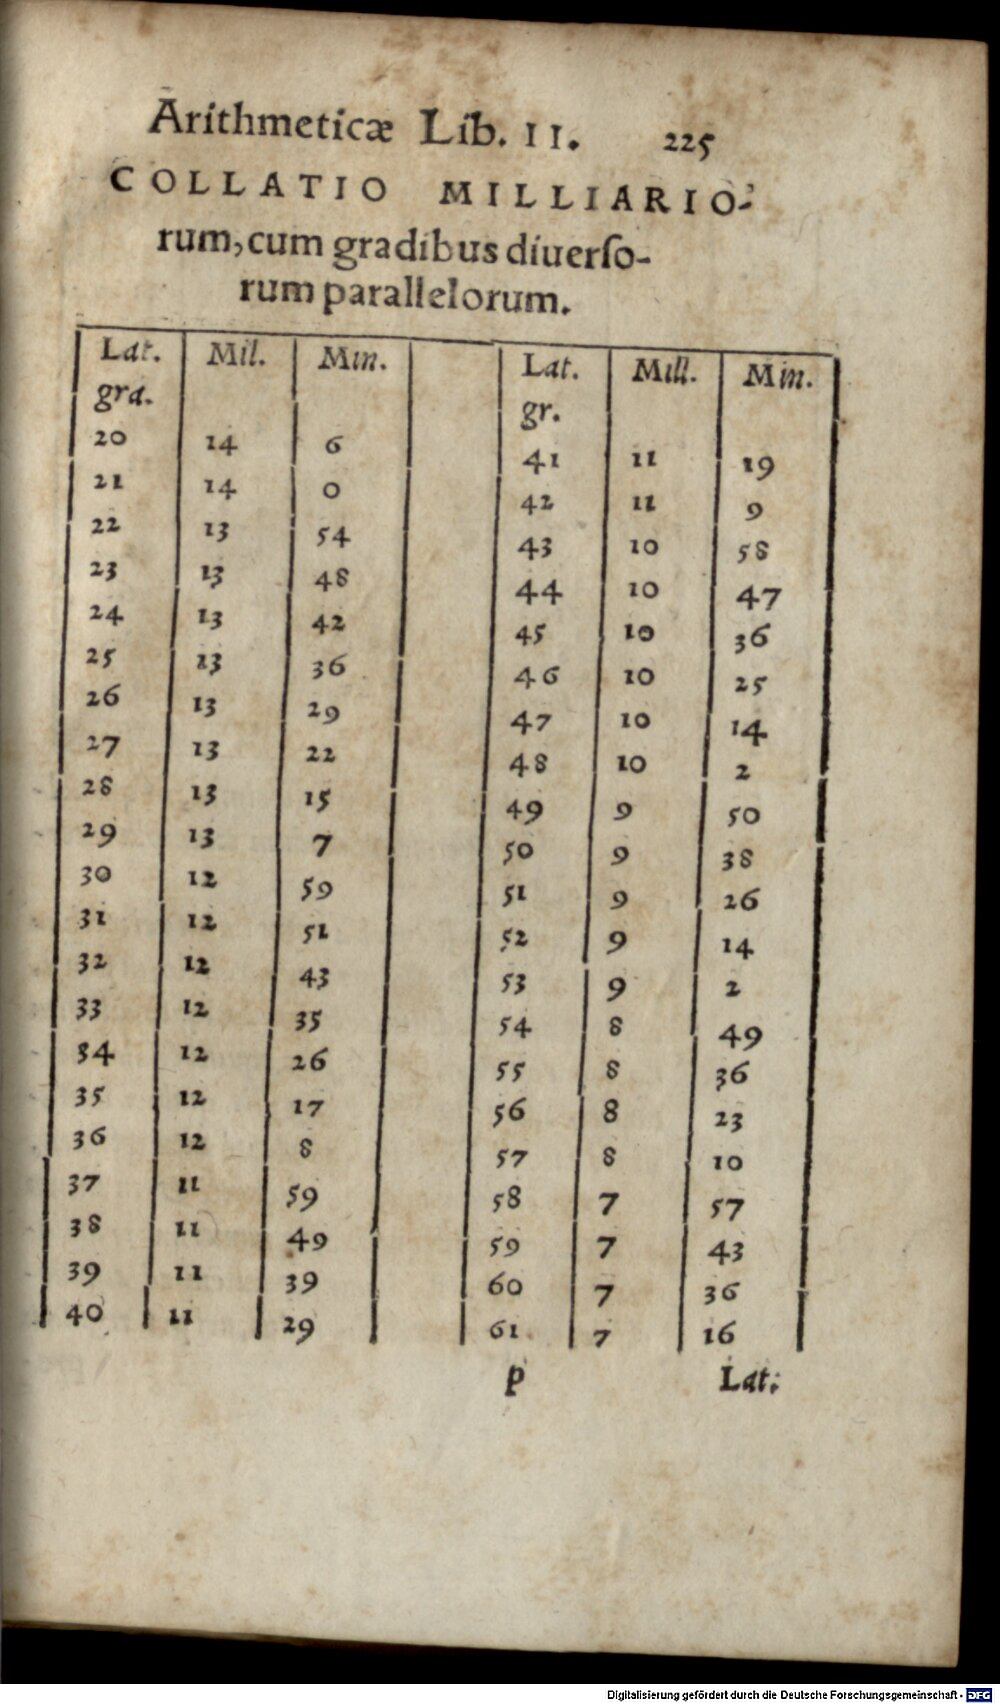 Arithmeticæ Lib. II. 225
COLLATIO MILLIARIO-
rum, cum gradibus diuerſo-
rum parallelorum.
Lat. Mil. Min. Lat. Mill. Min.
gra. gr.
20 14 6 41 11 19
21 14 0 42 11 9
22 13 54 43 10 58
23 13 48 44 10 47
24 13 42 45 10 36
25 13 36 46 10 25
26 13 29 47 10 14
27 13 22 48 10 2
28 13 15 49 9 50
29 13 7 50 9 38
30 12 59 51 9 26
31 12 51 52 9 14
32 12 43 53 9 2
33 12 35 54 8 49
34 12 26 55 8 36
35 12 17 56 8 23
36 12 8 57 8 10
37 11 59 58 7 57
38 11 49 59 7 43
39 11 39 60 7 36
40 11 29 61 7 16
p Lat.
Digitalisierung gefördert durch die Deutsche Forschungsgemeinschaft - DFG